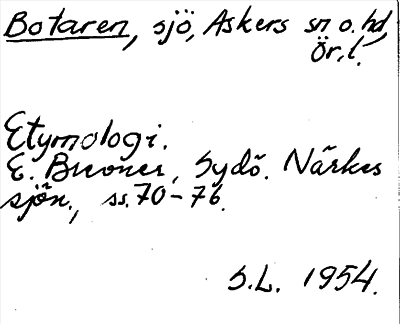 Botaren, sjö, Askers sn o. hd,
Ör. l.
Etymologi.
E. Brevner, Sydö. Närkes
sjön., ss. 70-76.
S.L. 1954.